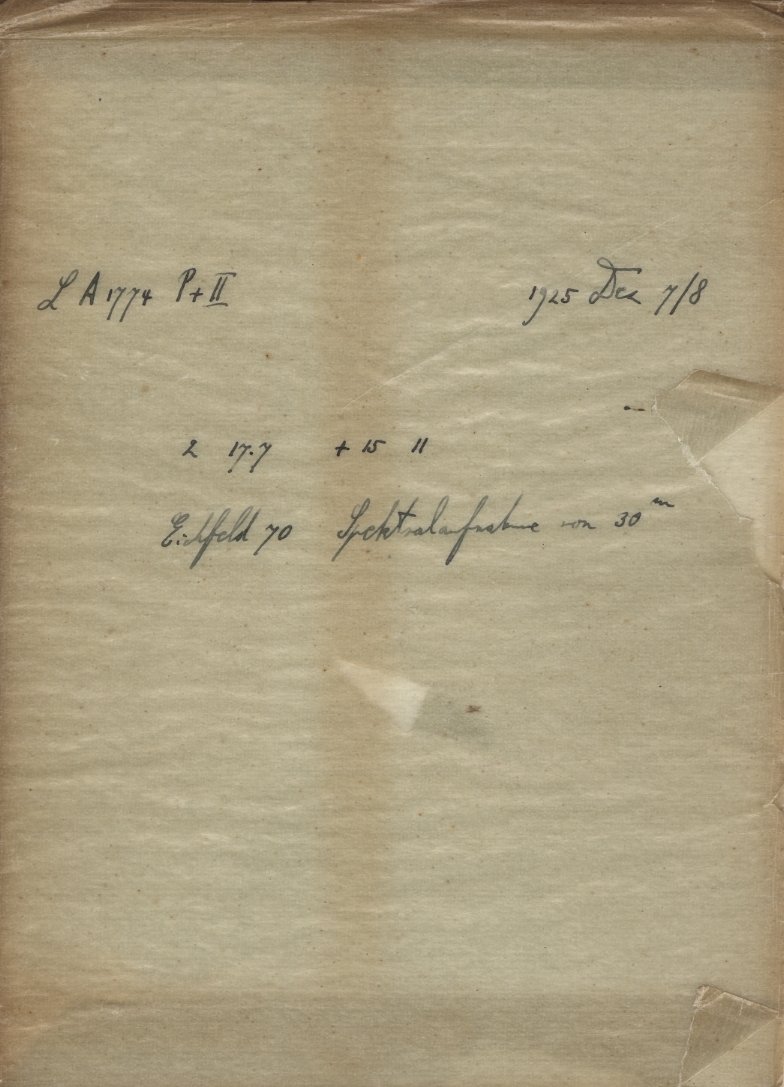 L A 1774 P + II 1925 Dez 7/8
2 17.7 + 15 11
Eichfeld 70 Spektralaufnahme von 30 m